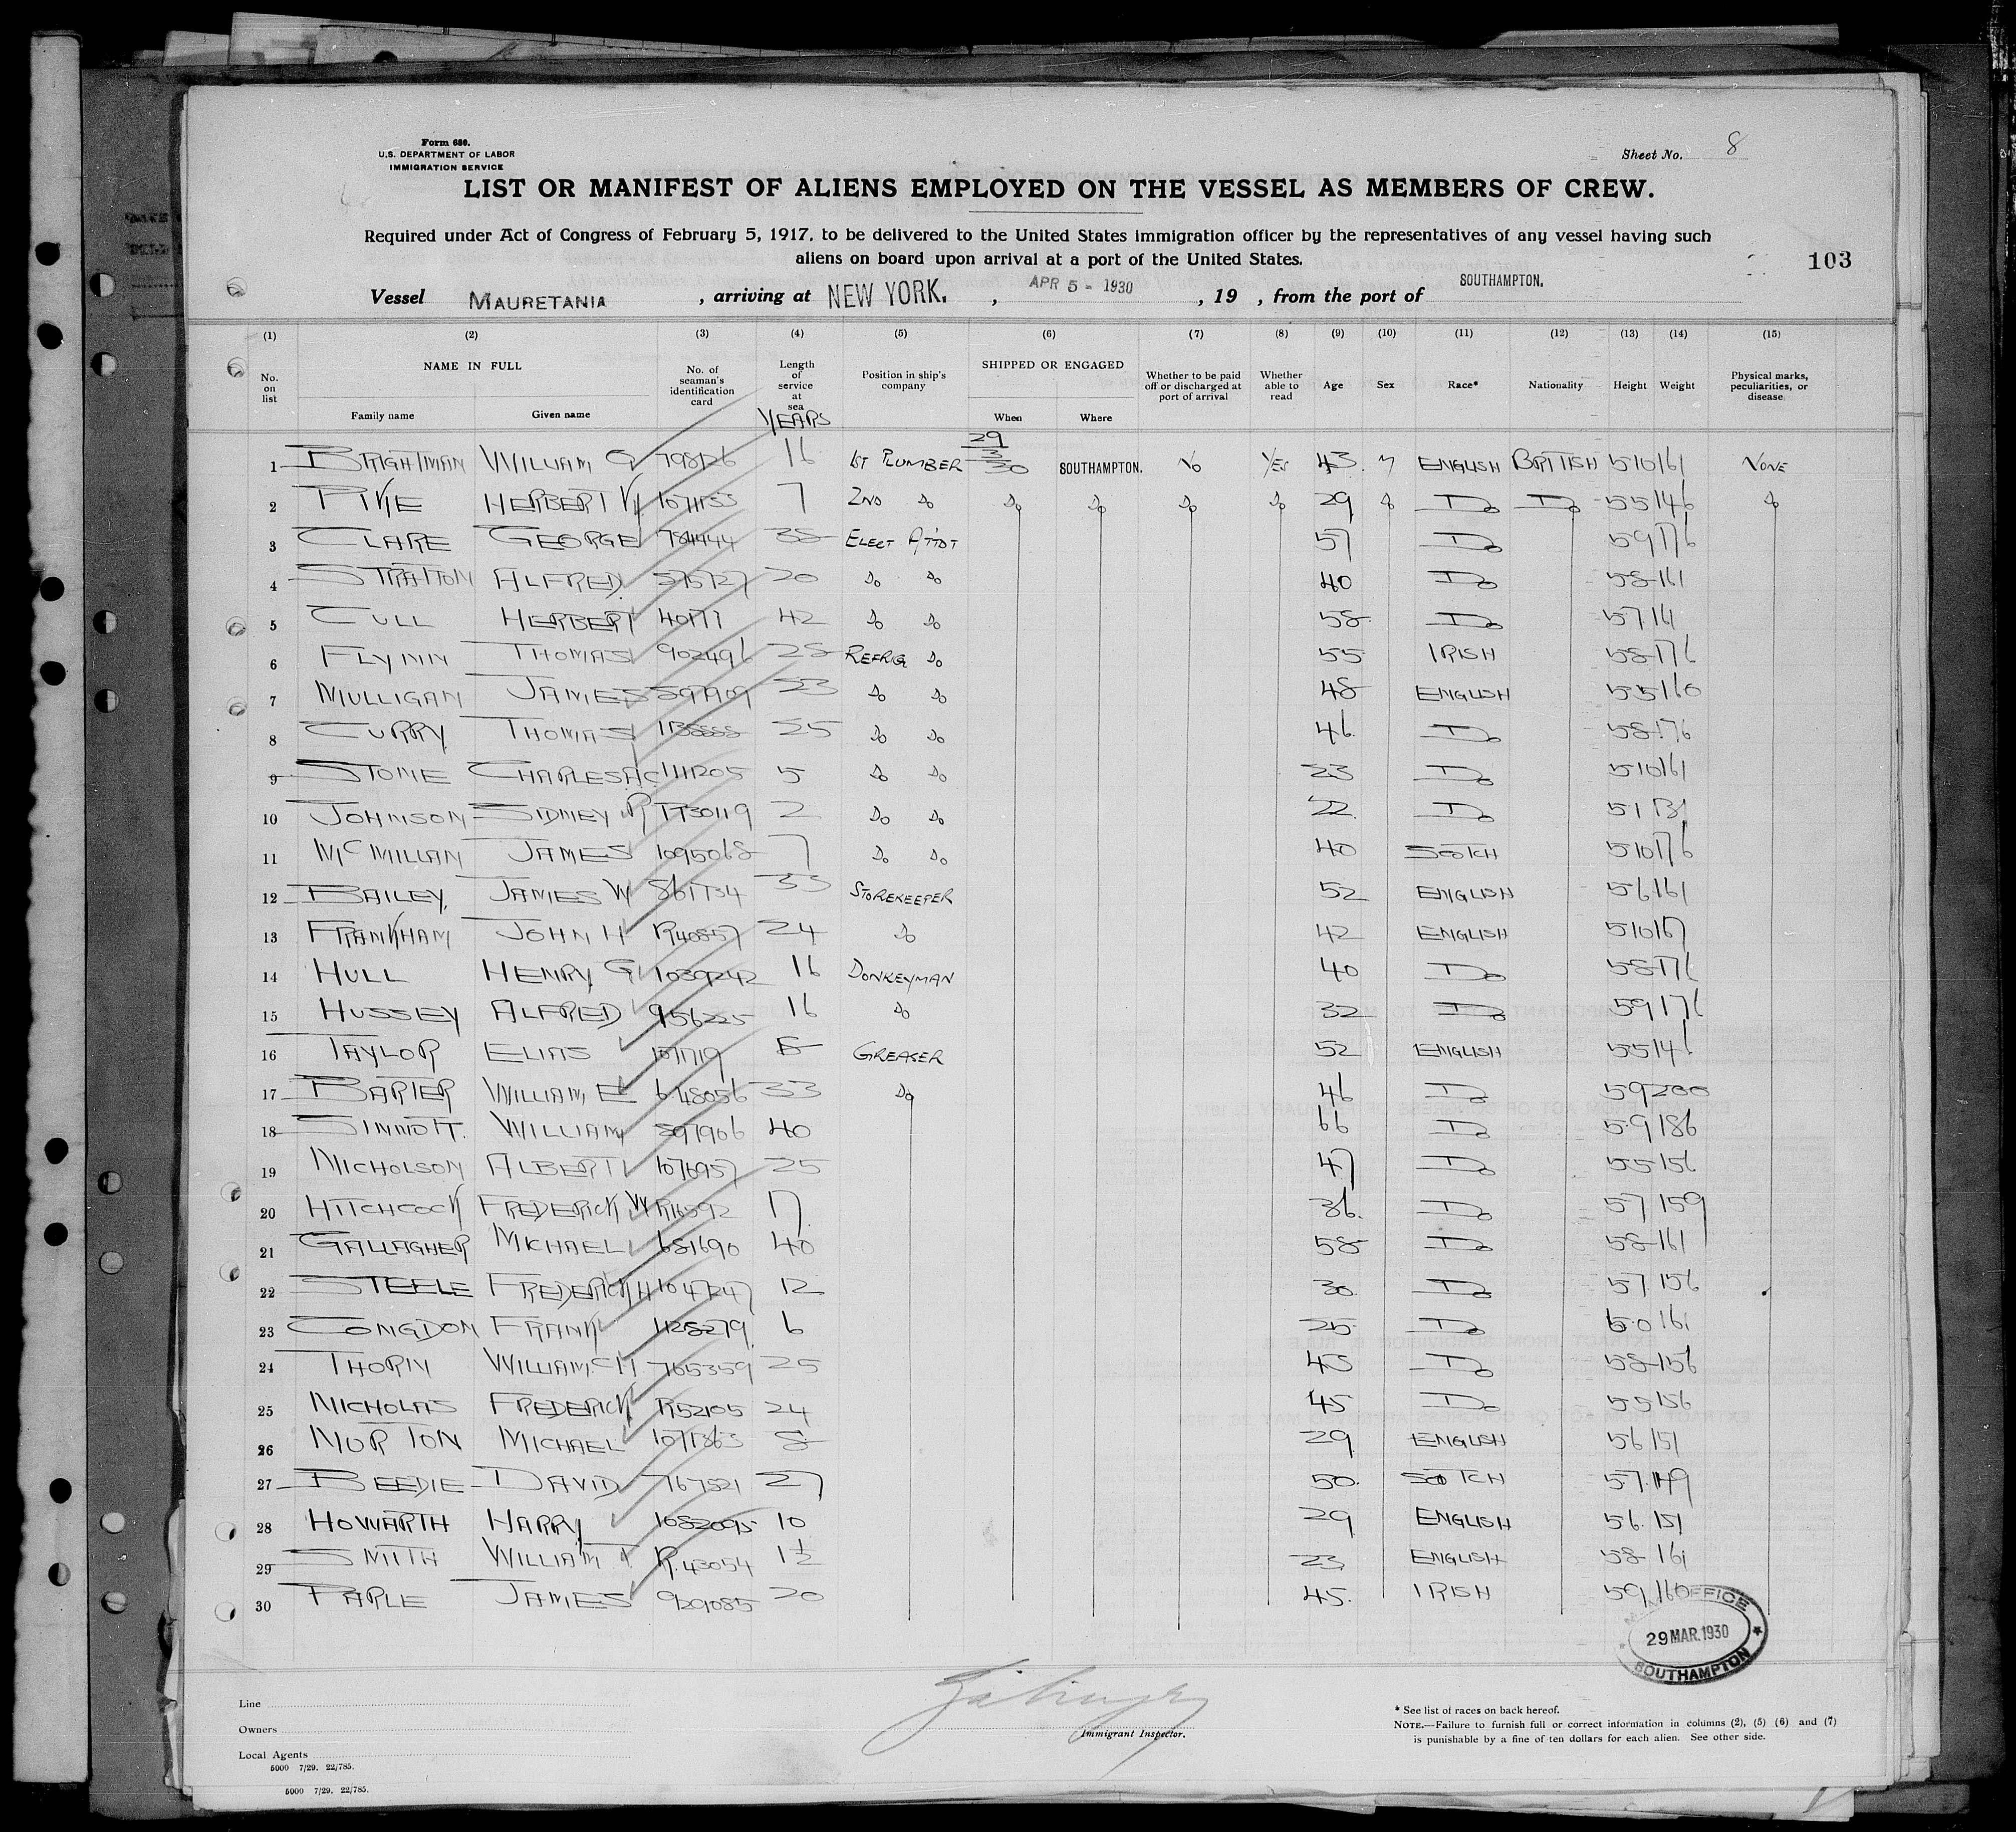 Form 680.
U.S. DEPARTMENT OF LABOR
IMMIGRATION SERVICE
Sheet No. 8
LIST OR MANIFEST OF ALIENS EMPLOYED ON THE VESSEL AS MEMBERS OF CREW.
Required under Act of Congress of February 5, 1917, to be delivered to the United States immigration officer by the representatives of any vessel having such
aliens on board upon arrival at a port of the United States.
103
Vessel MAURETANIA , arriving at NEW YORK. , APR 5 - 1930 , 19 , from the port of SOUTHAMPTON.
(1) (2) (3) (4) (5) (6) (7) (8) (9) (10) (11) (12) (13) (14) (15)
No. on list NAME IN FULL Family name Given name No. of seaman's identification card Length of service at sea YEARS Position in ship's company SHIPPED OR ENGAGED When Where Whether to be paid off or discharged at port of arrival Whether able to read Age Sex Race* Nationality Height Weight Physical marks, peculiarities, or disease
1 BRIGHTMAN WILLIAM G 798126 16 1ST PLUMBER 29/3/30 SOUTHAMPTON. NO YES 43 M ENGLISH BRITISH 510 161 NONE
2 PIKE HERBERT W 1071153 7 2ND Do Do Do Do Do 29 Do Do Do 55 146 Do
3 CLARE GEORGE 784444 35 ELECT ATTDT 57 Do 59 176
4 STRATTON ALFRED 575727 20 Do Do 40 Do 58 161
5 CULL HERBERT 42 Do Do 58 Do 57 161
6 FLYNN THOMAS 902496 28 REFRIG Do 55 IRISH 58 176
7 MULLIGAN JAMES 23 Do Do 48 ENGLISH 55 160
8 CURRY THOMAS 25 Do Do 46 Do 58 176
9 STONE CHARLES A.C. 1111205 5 Do Do 23 Do 510 161
10 JOHNSON SIDNEY R 2 Do Do 22 Do 51
11 MCMILLAN JAMES 1095068 7 Do Do 40 SCOTCH 510 176
12 BAILEY JAMES W 861734 33 STOREKEEPER 52 ENGLISH 56 161
13 FRANKHAM JOHN H R40857 24 Do 42 ENGLISH 510 167
14 HULL HENRY G 1039242 16 DONKEYMAN 40 Do 58 176
15 HUSSEY ALFRED 956225 16 Do 32 Do 59 176
16 TAYLOR ELIAS 8 GREASER 52 ENGLISH 55 146
17 BARTER WILLIAM E 648056 33 Do 46 Do 59 200
18 SINNOTT WILLIAM 597906 40 66 Do 59 186
19 NICHOLSON ALBERT 1076957 25 47 Do 55 156
20 HITCHCOCK FREDERICK W R16592 17 36 Do 57 159
21 GALLAGHER MICHAEL 681690 40 58 Do 58 161
22 STEELE FREDERICK H 1047247 12 30 Do 57 156
23 CONGDON FRANK 1128279 6 25 Do 161
24 THORN WILLIAM C H 765359 25 43 Do 58 156
25 NICHOLAS FREDERICK R52105 24 45 Do 55 156
26 MORTON MICHAEL 1071363 8 29 ENGLISH 56 151
27 BEEDIE DAVID 767521 27 50 SCOTCH 57 149
28 HOWARTH HARRY 1082095 10 29 ENGLISH 56 151
29 SMITH WILLIAM T R.43054 1½ 23 ENGLISH 58 161
30 EARLE JAMES 929085 20 45 IRISH 59 160
OFFICE
29 MAR. 1930
SOUTHAMPTON
Line
Owners
Local Agents
5000 7/29. 22/785.
5000 7/29. 22/785.
Immigrant Inspector.
* See list of races on back hereof.
NOTE.—Failure to furnish full or correct information in columns (2), (5) (6) and (7)
is punishable by a fine of ten dollars for each alien. See other side.